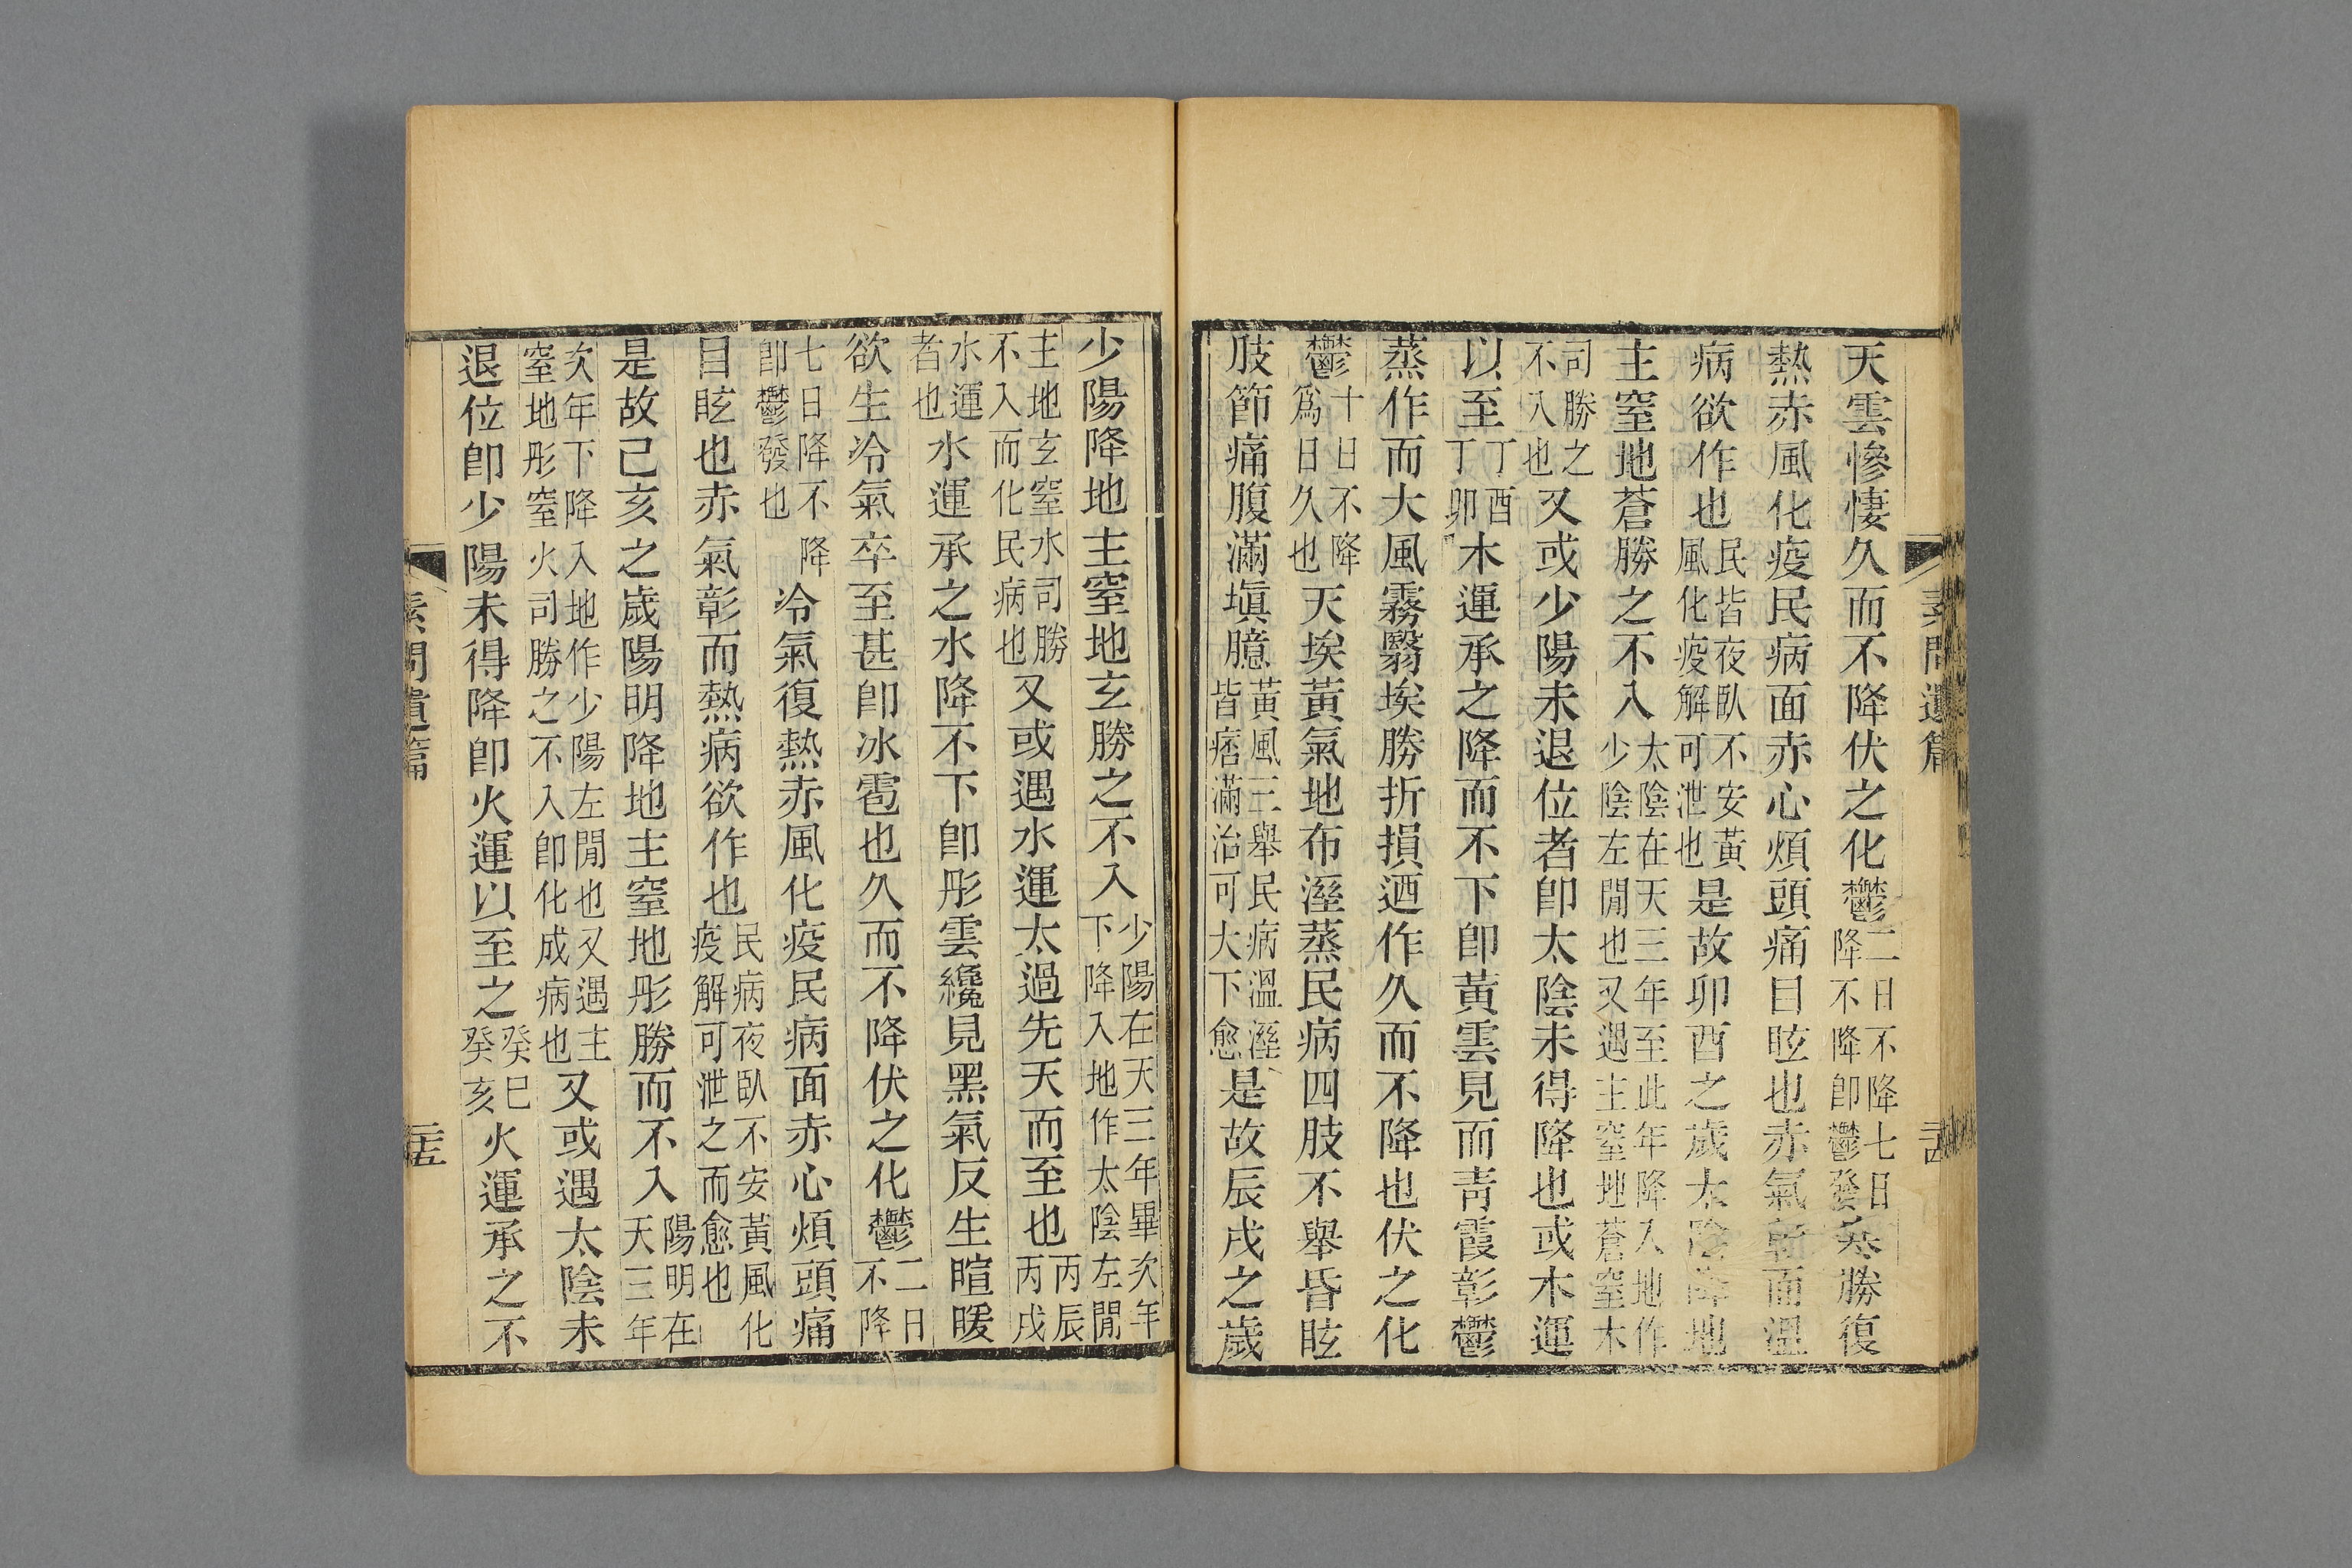 素問遺篇
天雲慘悽久而不降伏之化鬱二日不降七日降不降卽鬱發寒勝復
熱赤風化疫民病面赤心煩頭痛目眩也赤氣彰而溫
病欲作也民皆夜臥不安黃風化疫解可泄也是故卯酉之歲太陰降地
主窒地蒼勝之不入太陰在天三年至此年降入地作少陰左閒也又遇主窒地蒼窒木
司勝之不入也又或少陽未退位者卽太陰未得降也或木運
以至丁酉丁卯木運承之降而不下卽黃雲見而靑霞彰鬱
蒸作而大風霧翳埃勝折損迺作久而不降也伏之化
鬱十日不降爲日久也天埃黃氣地布溼蒸民病四肢不舉昏眩
肢節痛腹滿塡臆黃風三舉民病溫溼皆痞滿治可大下愈是故辰戌之歲
少陽降地主窒地玄勝之不入少陽在天三年畢次年下降入地作太陰左閒
主地玄窒水司勝不入而化民病也又或遇水運太過先天而至也丙辰丙戌
水運者也水運承之水降不下卽彤雲纔見黑氣反生暄暖
欲生冷氣卒至甚卽冰雹也久而不降伏之化鬱二日不降
七日降不降卽鬱發也冷氣復熱赤風化疫民病面赤心煩頭痛
目眩也赤氣彰而熱病欲作也民病夜臥不安黃風化疫解可泄之而愈也
是故己亥之歲陽明降地主窒地彤勝而不入陽明在天三年
次年下降入地作少陽左閒也又遇主窒地彤窒火司勝之不入卽化成病也又或遇太陰未
退位卽少陽未得降卽火運以至之癸巳癸亥火運承之不
素問遺篇
二十五